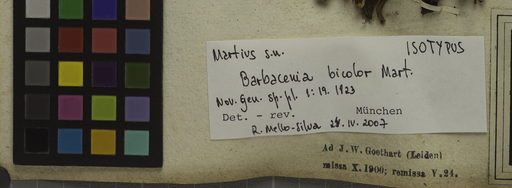 Martius s.n. ISOTYPUS
Barbacenia bicolor Mart.
Nov. Gen. Sp. pl. 1: 19. 1823
Det. - rev. München
R. Mello-Silva 24. IV. 2007
Ad J. W. Goethart (Leiden)
missa X. 1900; remissa V. 24.